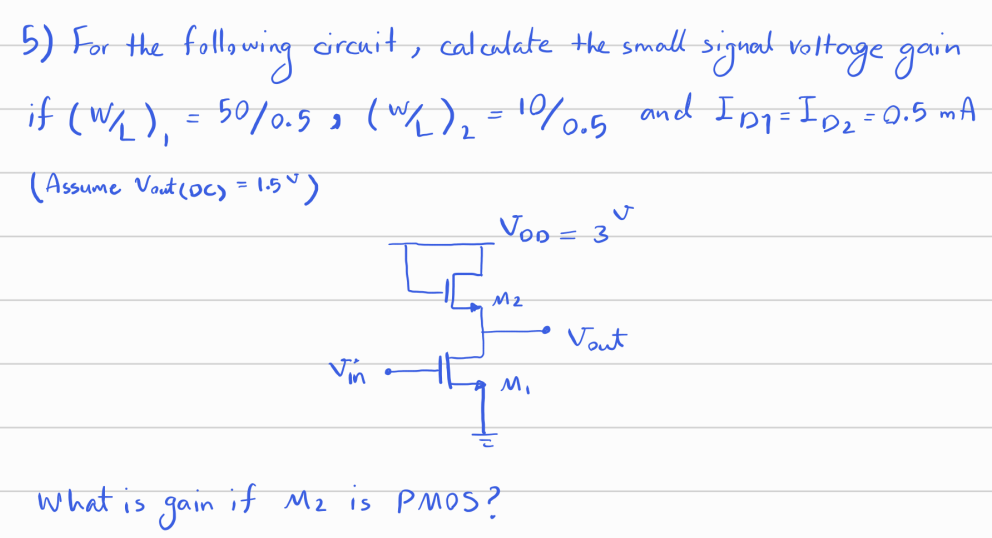 5) For the following circuit, calculate the small signal voltage gain
if (W/L)₁ = 50/0.5, (W/L)₂ = 10/0.5 and I_D1 = I_D2 = 0.5 mA
(Assume Vout(DC) = 1.5 V)
V_DD = 3 V
M2
Vout
Vin
M1
What is gain if M2 is PMOS?